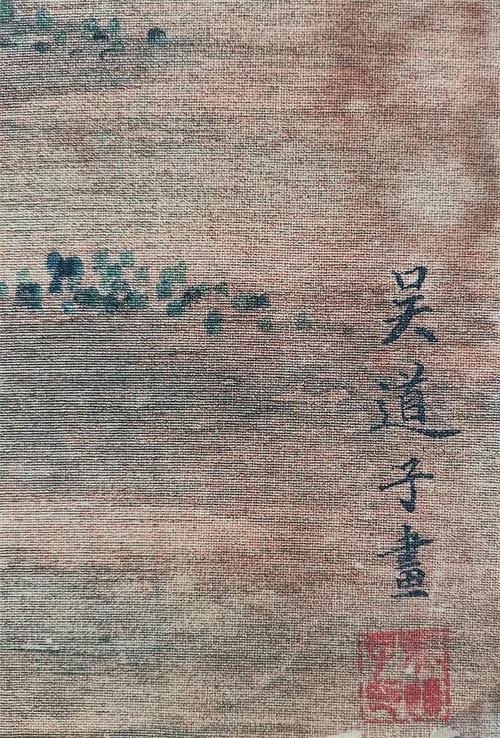 吴道子畫